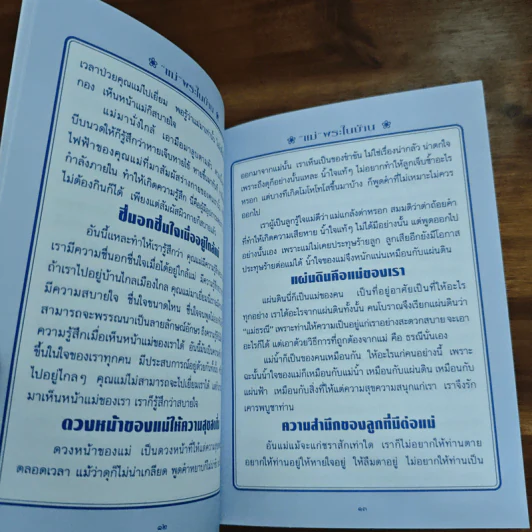 "แม่" พระในบ้าน
เวลาป่วยคุณแม่ไปเยี่ยม พอรู้ว่าแม่มา
กอง เห็นหน้าแม่ก็สบายใจ
แม่มานั่งใกล้ เอามือมาลูบตามแข้ง
บีบนวดให้ก็รู้สึกว่าหายเจ็บหายไข้
ไฟฟ้าของคุณแม่ที่มาสัมผัสร่างกายของ
กำลังภายใน ทำให้เกิดความรู้สึก
ไม่ต้องกินก็ได้ เพียงแต่สัมผัส
ชื่นอกชื่นใจเมื่ออยู่ใกล้แม่
อันนี้แหละทำให้เรารู้สึกว่า คุณแม่
เรามีความชื่นอกชื่นใจเมื่อได้อยู่ใกล้แม่ มีความรู้สึก
ถ้าเราไปอยู่บ้านไกลเมืองไกล คุณแม่มาเยี่ยม
มีความสบายใจ ชื่นใจขนาดไหน ชื่นใจ
สามารถจะพรรณนาเป็นลายลักษณ์อักษร
ความรู้สึกเมื่อเห็นหน้าแม่ของเราได้ อันนี้มัน
ขึ้นในใจของเราทุกคน มีประสบการณ์อยู่ด้วยกัน
ไปอยู่ไกลๆ คุณแม่ไม่สามารถจะไปเยี่ยมเราได้ แต่
มาเห็นหน้าแม่ของเรา เราก็รู้สึกว่าสบายใจ
ดวงหน้าของแม่ให้ความสุขสดชื่น
ดวงหน้าของแม่ เป็นดวงหน้าที่ให้แต่ความสุข
ตลอดเวลา แม้ว่าดุก็ไม่น่าเกลียด พูดคำหยาบก็ไม่
๑๒
"แม่" พระในบ้าน
ออกมาจากแม่นั้น เราเห็นเป็นของขำขัน ไม่ใช่เรื่องน่ากลัว น่าตกใจ
เพราะถึงดุก็อย่างนั้นแหละ น้ำใจแท้ๆ ไม่อยากทำให้ลูกเจ็บช้ำอะไร
หรอก แต่บางทีเกิดโมโหโทโสขึ้นมาบ้าง ก็พูดคำที่ไม่เหมาะไม่ควร
ออกไป
เราผู้เป็นลูกรู้ใจแม่ดีว่า แม่แกล้งด่าหรอก สมมติว่าด่าด้วยถ้อยคำ
ที่ทำให้เกิดความเสียหาย น้ำใจแท้ๆ ไม่ได้มีอย่างนั้น แต่พูดออกไป
อย่างนั้นเอง เพราะแม่ไม่เคยประทุษร้ายลูก ลูกเสียอีกยังมีโอกาส
ประทุษร้ายต่อแม่ได้ น้ำใจของแม่จึงหนักแน่นเหมือนกับแผ่นดิน
แผ่นดินคือแม่ของเรา
แผ่นดินนี้ก็เป็นแม่ของคน เป็นที่อยู่อาศัยเป็นที่ให้อะไร
ทุกอย่าง เราได้อะไรจากแผ่นดินทั้งนั้น คนโบราณจึงเรียกแผ่นดินว่า
"แม่ธรณี" เพราะท่านให้ความเป็นอยู่แก่เราอย่างสะดวกสบาย จะเอา
อะไรก็ได้ แต่เอาด้วยวิธีการที่ถูกต้องจากแม่ คือ ธรณีนั่นเอง
แม่น้ำก็เป็นของคนเหมือนกัน ให้อะไรแก่คนอย่างนี้ เพราะ
ฉะนั้นน้ำใจของแม่ก็เหมือนกับแม่น้ำ เหมือนกับแผ่นดิน เหมือนกับ
แผ่นฟ้า เหมือนกับสิ่งที่ให้แต่ความสุขความสนุกแก่เรา เราจึงรัก
เคารพบูชาท่าน
ความสำนึกของลูกที่มีต่อแม่
อันแม่แม้จะแก่ชราสักเท่าใด เราก็ไม่อยากให้ท่านตาย
อยากให้ท่านอยู่ให้หายใจอยู่ ให้ลืมตาอยู่ ไม่อยากให้ท่านเป็น
๑๓